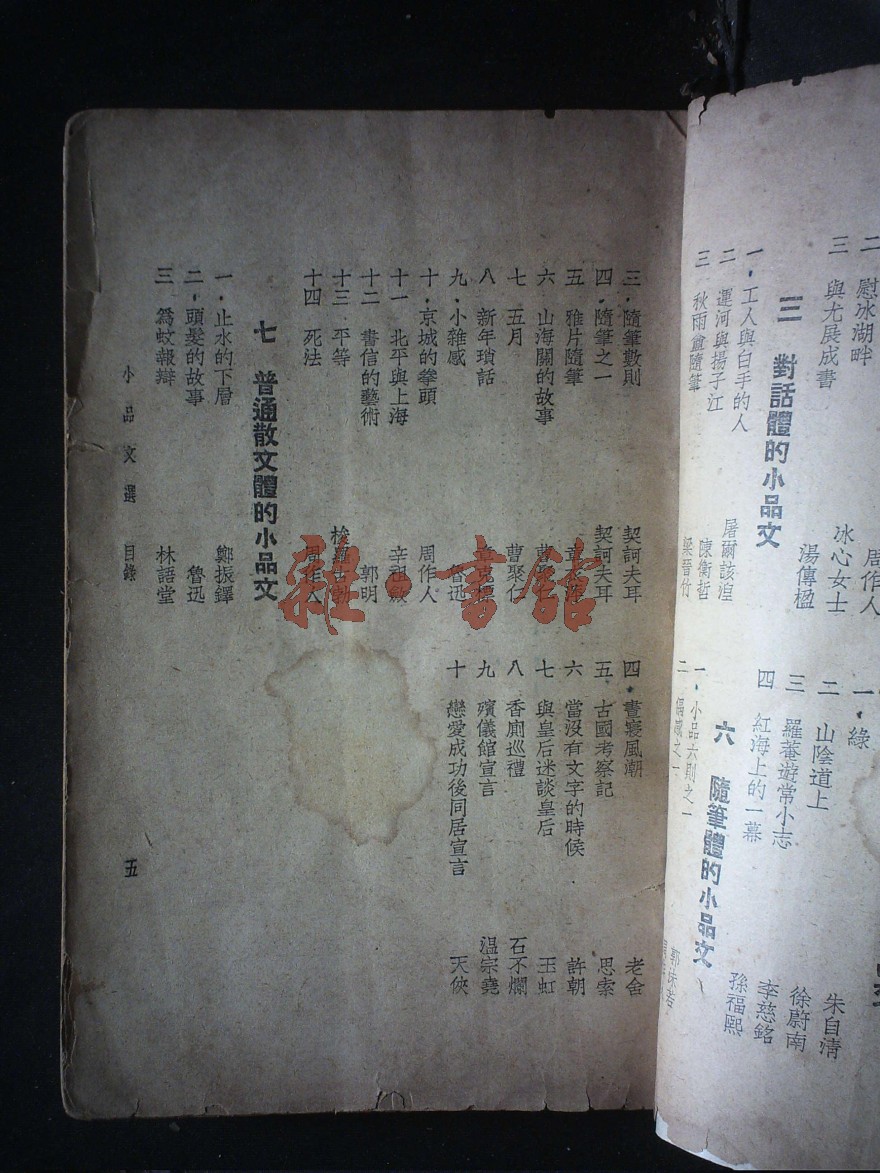 二 慰冰湖畔 冰心女士
三 與尤展成書 湯傳楹
三 對話體的小品文
一．工人與白手的人 屠爾該湼
二 運河與揚子江 陳衡哲
三 秋雨盦隨筆 梁晉竹
周作人
一．綠 朱自清
二 山陰道上 徐蔚南
三 羅菴遊常小志 李慈銘
四 紅海上的一幕 孫福熙
六 隨筆體的小品文
一．小品六則之一 郭沫若
二
三．隨筆數則 契訶夫耳
四．隨筆之一 契訶夫耳
五 雅片隨筆
六 山海關的故事
七 五月 曹聚仁
八 新年瑣話 章克標
九．小雜感 魯迅
十．京城的拳頭 周作人
十一 北平與上海 辛祖敏
十二 書信的藝術 郭明
十三 平等 梭羅古勃
十四 死法 周作人
七 普通散文體的小品文
一．止水的下層 鄭振鐸
二．頭髮的故事 魯迅
三 爲蚊報辯 林語堂
四．晝寢風潮 老舍
五．古國考察記 思索
六 當沒有文字的時候 許朝
七 與皇后迷談皇后 玉虹
八 香廁巡禮 石不爛
九 殯儀館宣言 温宗堯
十 戀愛成功後同居宣言 天俠
小品文選 目錄 五
雜·書館